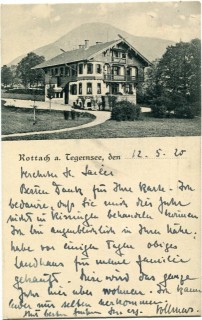 Rottach a. Tegernsee, den 12. 5. 20
Verehrter H. Sailer
Besten Dank für Ihre Karte. Ich
bedaure, daß Sie mich dies Jahr
nicht in Kissingen behandeln können
Ich bin augenblicklich in Ihrer Nähe.
habe vor einigen Tagen obiges
Landhaus für meine Familie
gekauft. Diese wird das ganze
Jahr hier über wohnen. Ich kann
leider nur selten herkommen.
Mit besten Grüßen Ihr erg.